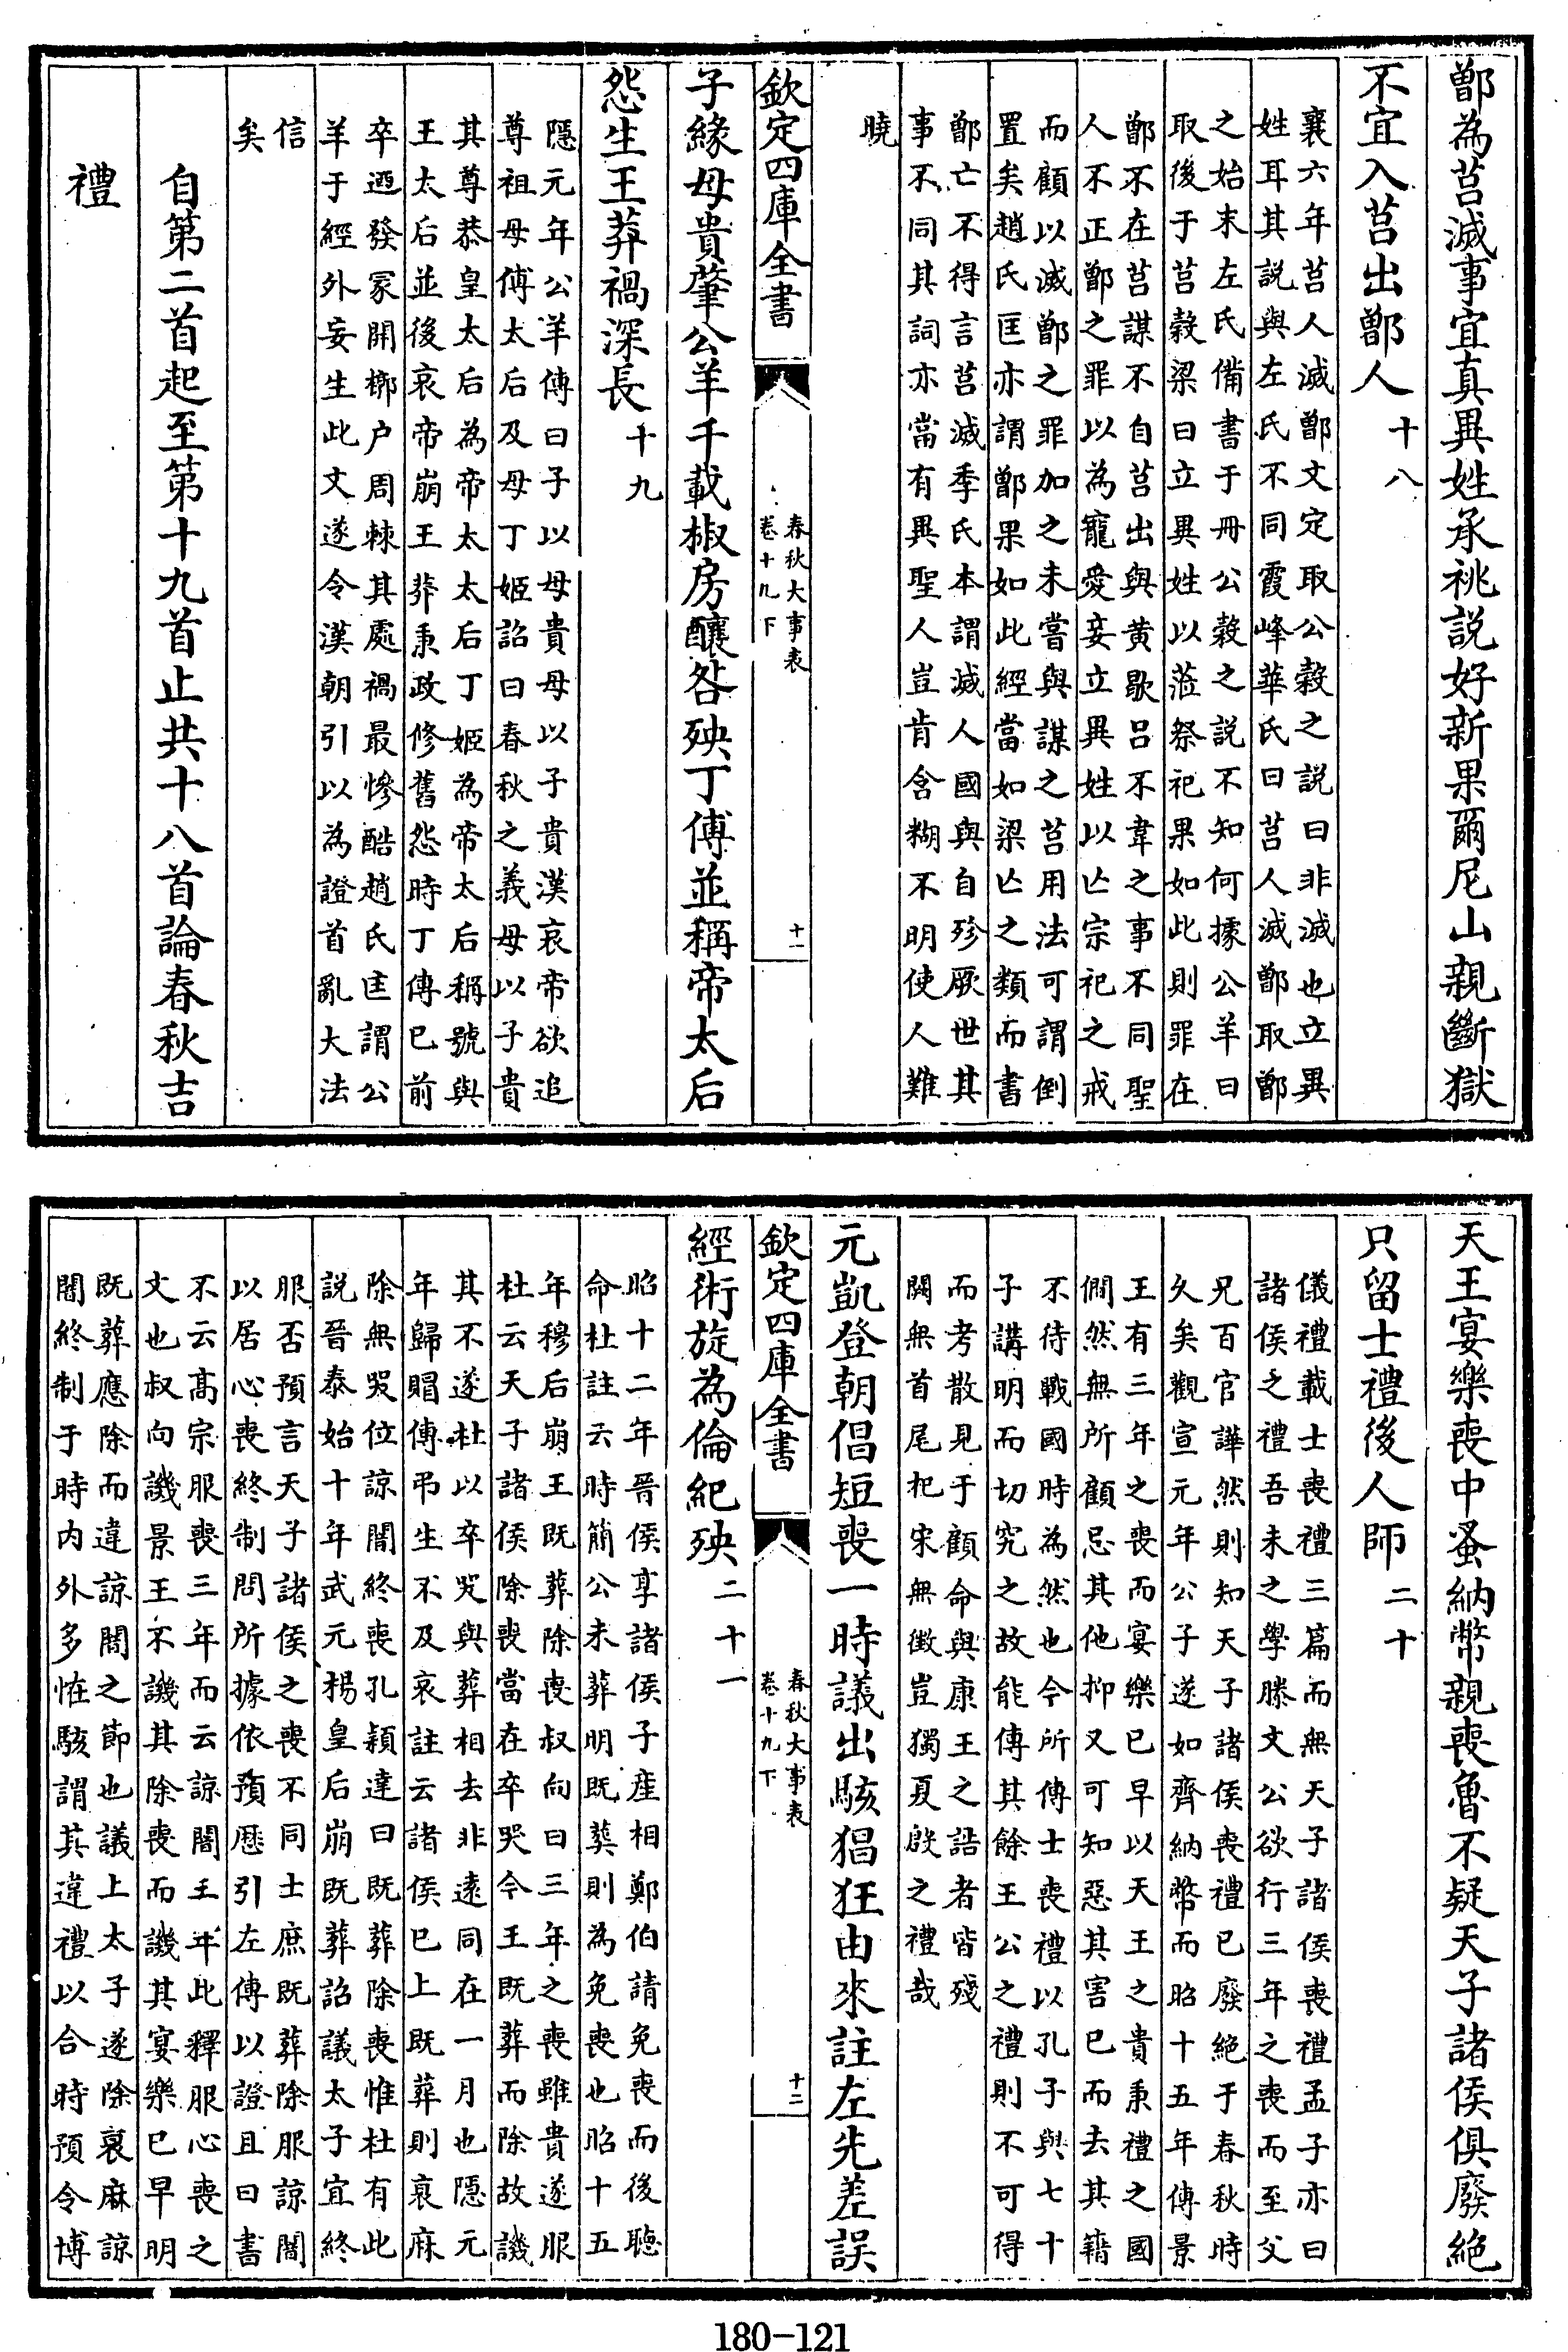 鄫為莒滅事宜真異姓承祧説好新果爾尼山親斷獄
不宜入莒出鄫人十八
襄六年莒人滅鄫文定取公穀之説曰非滅也立異
姓耳其説與左氏不同霞峰華氏曰莒人滅鄫取鄫
之始末左氏備書于冊公穀之説不知何據公羊曰
取後于莒穀梁曰立異姓以蒞祭祀果如此則罪在
鄫不在莒謀不自莒出與黄歇吕不韋之事不同聖
人不正鄫之罪以為寵愛妾立異姓以亡宗祀之戒
而顧以滅鄫之罪加之未嘗與謀之莒用法可謂倒
置矣趙氏匡亦謂鄫果如此經當如梁亡之類而書
鄫亡不得言莒滅季氏本謂滅人國與自殄厥世其
事不同其詞亦當有異聖人豈肯含糊不明使人難
曉
欽定四庫全書
春秋大事表
卷十九下
十一
子緣母貴肇公羊千載椒房釀咎殃丁傅並稱帝太后
怨生王莽禍深長十九
隱元年公羊傳曰子以母貴母以子貴漢哀帝欲追
尊祖母傅太后及母丁姬詔曰春秋之義母以子貴
其尊恭皇太后為帝太太后丁姬為帝太后稱號與
王太后並後哀帝崩王莽秉政修舊怨時丁傅已前
卒迺發冢開槨户周棘其處禍最慘酷趙氏匡謂公
羊于經外妄生此文遂令漢朝引以為證首亂大法
信
矣
自第二首起至第十九首止共十八首論春秋吉
禮
天王宴樂喪中蚤納幣親喪魯不疑天子諸侯俱廢絶
只留士禮後人師二十
儀禮載士喪禮三篇而無天子諸侯喪禮孟子亦曰
諸侯之禮吾未之學滕文公欲行三年之喪而至父
兄百官譁然則知天子諸侯喪禮已廢絶于春秋時
久矣觀宣元年公子遂如齊納幣而昭十五年傳景
王有三年之喪而宴樂已早以天王之貴秉禮之國
僩然無所顧忌其他抑又可知惡其害已而去其籍
不待戰國時為然也今所傳士喪禮以孔子與七十
子講明而切究之故能傳其餘王公之禮則不可得
而考散見于顧命與康王之誥者皆殘
闕無首尾杞宋無徴豈獨夏殷之禮哉
元凱登朝倡短喪一時議出駭猖狂由來註左先差誤
欽定四庫全書
春秋大事表
卷十九下
十二
經術旋為倫紀殃二十一
昭十二年晉侯享諸侯子産相鄭伯請免喪而後聽
命杜註云時簡公未葬明既葬則為免喪也昭十五
年穆后崩王既葬除喪叔向曰三年之喪雖貴遂服
杜云天子諸侯除喪當在卒哭今王既葬而除故譏
其不遂杜以卒哭與葬相去非遠同在一月也隱元
年歸賵傳弔生不及哀註云諸侯已上既葬則衰麻
除無哭位諒闇終喪孔穎達曰既葬除喪惟杜有此
説晉泰始十年武元楊皇后崩既葬詔議太子宜終
服否預言天子諸侯之喪不同士庶既葬除服諒闇
以居心喪終制問所據依預歴引左傳以證且曰書
不云高宗服喪三年而云諒闇三年此釋服心喪之
文也叔向譏景王不譏其除喪而譏其宴樂已早明
既葬應除而違諒闇之節也議上太子遂除衰麻諒
闇終制于時内外多怪駭謂其違禮以合時預令博
180-121